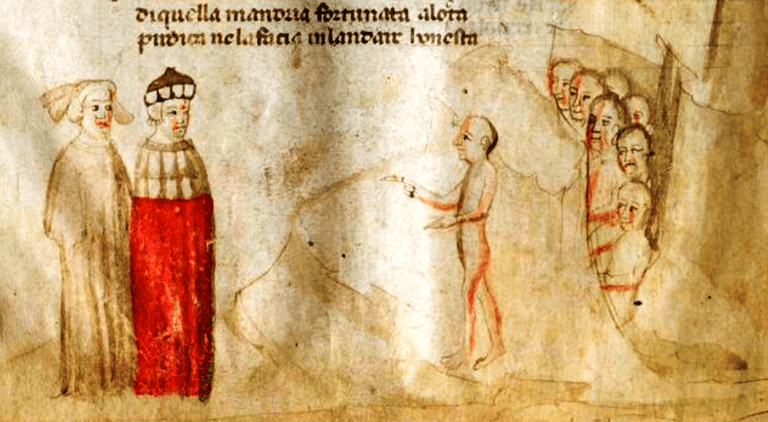 diquella mandria fortunata alota
pudica nelafacia inlandare honesta